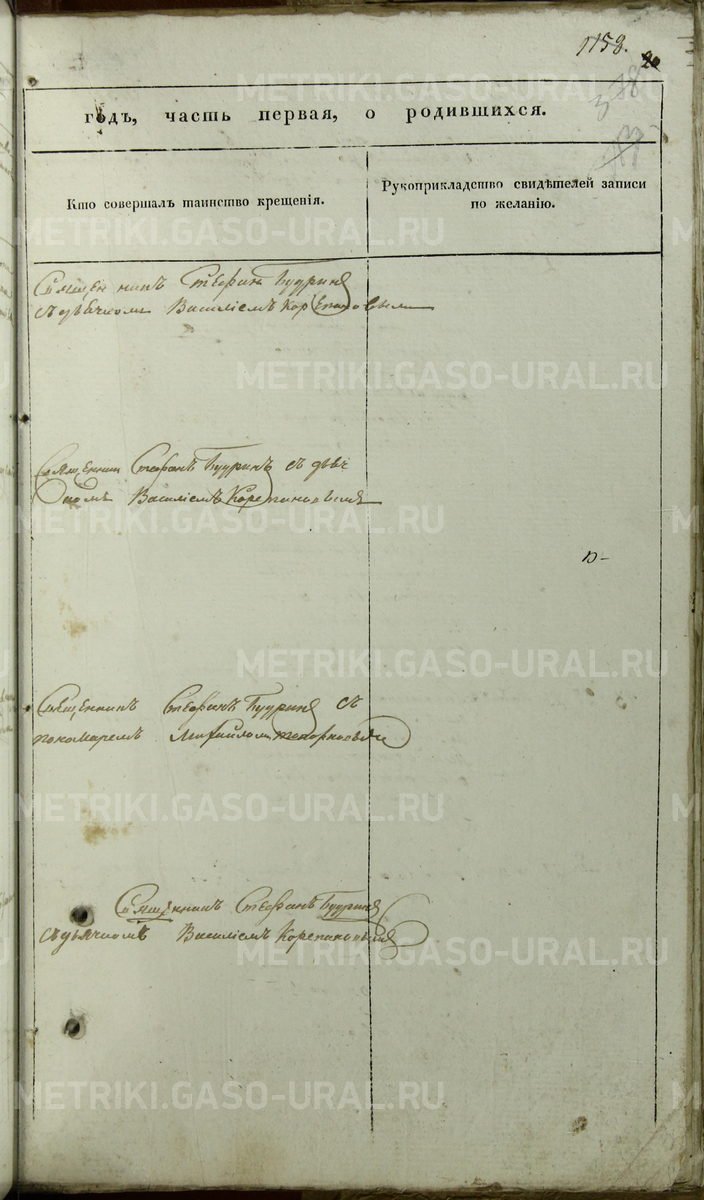 1158.
годъ, часть первая, о родившихся.
Кто совершалъ таинство крещенія.
Рукоприкладство свидѣтелей записи
по желанію.
Священникъ Стефанъ
съ дьячкомъ Василіемъ Корепановымъ
Священникъ Стефанъ съ дьяч
комъ Василіемъ Корепановымъ
Священникъ Стефанъ съ
пономаремъ Михайломъ
Священникъ Стефанъ
съ дьячкомъ Василіемъ Корепановымъ
METRIKI.GASO-URAL.RU